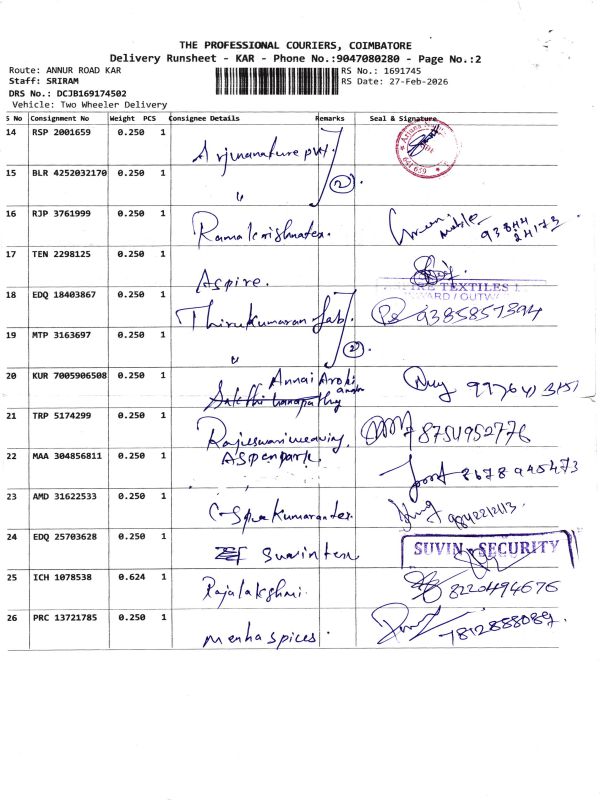 THE PROFESSIONAL COURIERS, COIMBATORE
Delivery Runsheet - KAR - Phone No.:9047080280 - Page No.:2
Route: ANNUR ROAD KAR
RS No.: 1691745
Staff: SRIRAM
RS Date: 27-Feb-2026
DRS No.: DCJB169174502
Vehicle: Two Wheeler Delivery
S No Consignment No Weight PCS Consignee Details Remarks Seal & Signature
14 RSP 2001659 0.250 1
Arjunanature pvt.
641 659
15 BLR 4252032170 0.250 1
" 2
16 RJP 3761999 0.250 1
Ramakrishnatex.
mobile 93844 24173
17 TEN 2298125 0.250 1
Aspire.
TEXTILES
18 EDQ 18403867 0.250 1
WARD / OUTW
Thirukumaran fab. 9385857394
19 MTP 3163697 0.250 1
" 2
20 KUR 7005906508 0.250 1
Annai Aroki
Sakthi Ganapathy
21 TRP 5174299 0.250 1
Rajeswari weaving. 8754952776
22 MAA 304856811 0.250 1
Aspenpark.
8678945473
23 AMD 31622533 0.250 1
C-Sivakumarantex.
24 EDQ 25703628 0.250 1
Suvintex
SUVIN SECURITY
25 ICH 1078538 0.624 1
Rajalakshmi. 8220494676
26 PRC 13721785 0.250 1
menha spices. 7812888089.